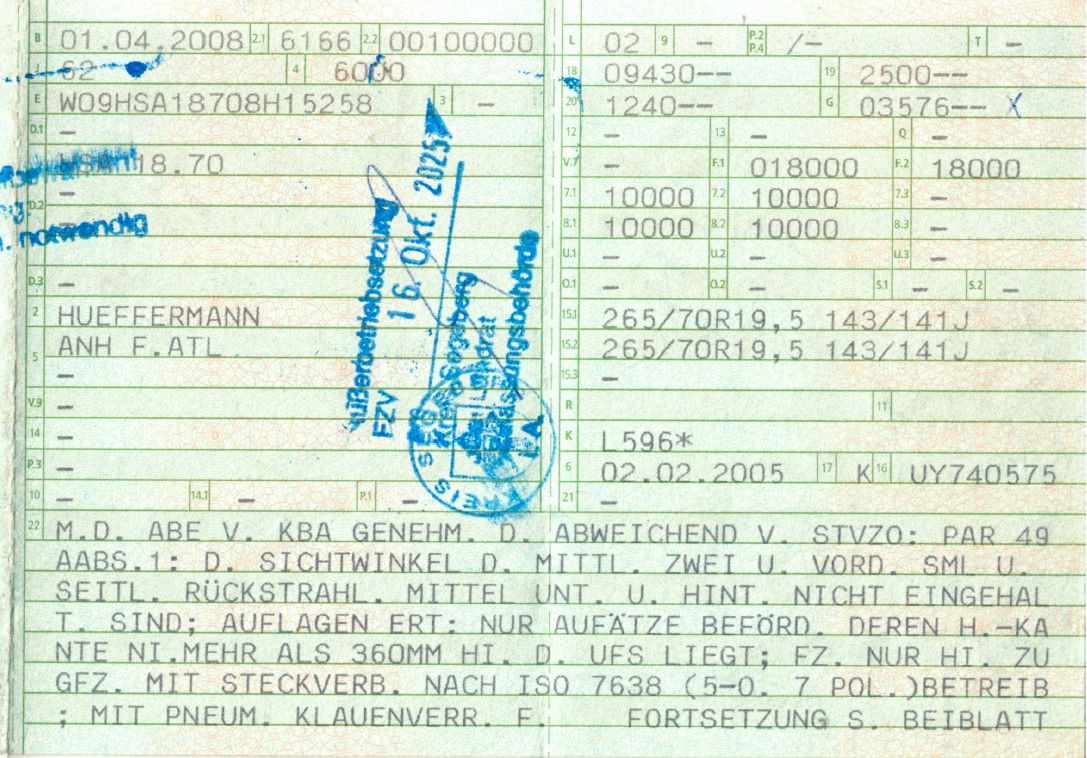 B 01.04.2008 2.1 6166 2.2 00100000
J 62 4 6000
E W09HSA18708H15258 3 –
D.1 –
HSA 18.70
–
D.2 –
notwendig
–
D.3 –
2 HUEFFERMANN
5 ANH F.ATL
–
V.9 –
14 –
P.3 –
10 – 14.1 – P.1 –
Außerbetriebsetzung
FZV 16. Okt. 2025
Kreis Segeberg
Landrat
Zulassungsbehörde
I.A.
KREIS SEGEBERG
L 02 9 – P.2 P.4 /– T –
18 09430-- 19 2500--
20 1240-- G 03576-- X
12 – 13 – Q –
V.7 – F.1 018000 F.2 18000
7.1 10000 7.2 10000 7.3 –
8.1 10000 8.2 10000 8.3 –
U.1 – U.2 – U.3 –
O.1 – O.2 – S.1 – S.2 –
15.1 265/70R19,5 143/141J
15.2 265/70R19,5 143/141J
15.3 –
R 11
K L596*
6 02.02.2005 17 K 16 UY740575
21 –
22 M.D. ABE V. KBA GENEHM. D. ABWEICHEND V. STVZO: PAR 49
AABS.1: D. SICHTWINKEL D. MITTL. ZWEI U. VORD. SML U.
SEITL. RÜCKSTRAHL. MITTEL UNT. U. HINT. NICHT EINGEHAL
T. SIND; AUFLAGEN ERT: NUR AUFÄTZE BEFÖRD. DEREN H.-KA
NTE NI.MEHR ALS 360MM HI. D. UFS LIEGT; FZ. NUR HI. ZU
GFZ. MIT STECKVERB. NACH ISO 7638 (5-O. 7 POL.)BETREIB
; MIT PNEUM. KLAUENVERR. F. FORTSETZUNG S. BEIBLATT